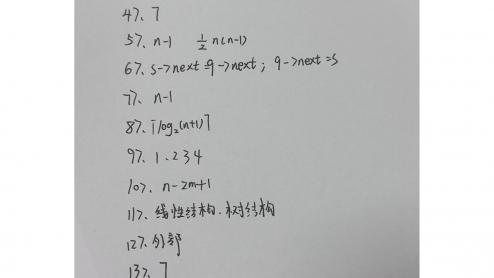 4>、7
5>、n-1 ½n(n-1)
6>、s->next=q->next; q->next=s
7>、n-1
8>、⌈log₂(n+1)⌉
9>、1、2 3 4
10>、n-2m+1
11>、线性结构、树结构
12>、外部
13>、7